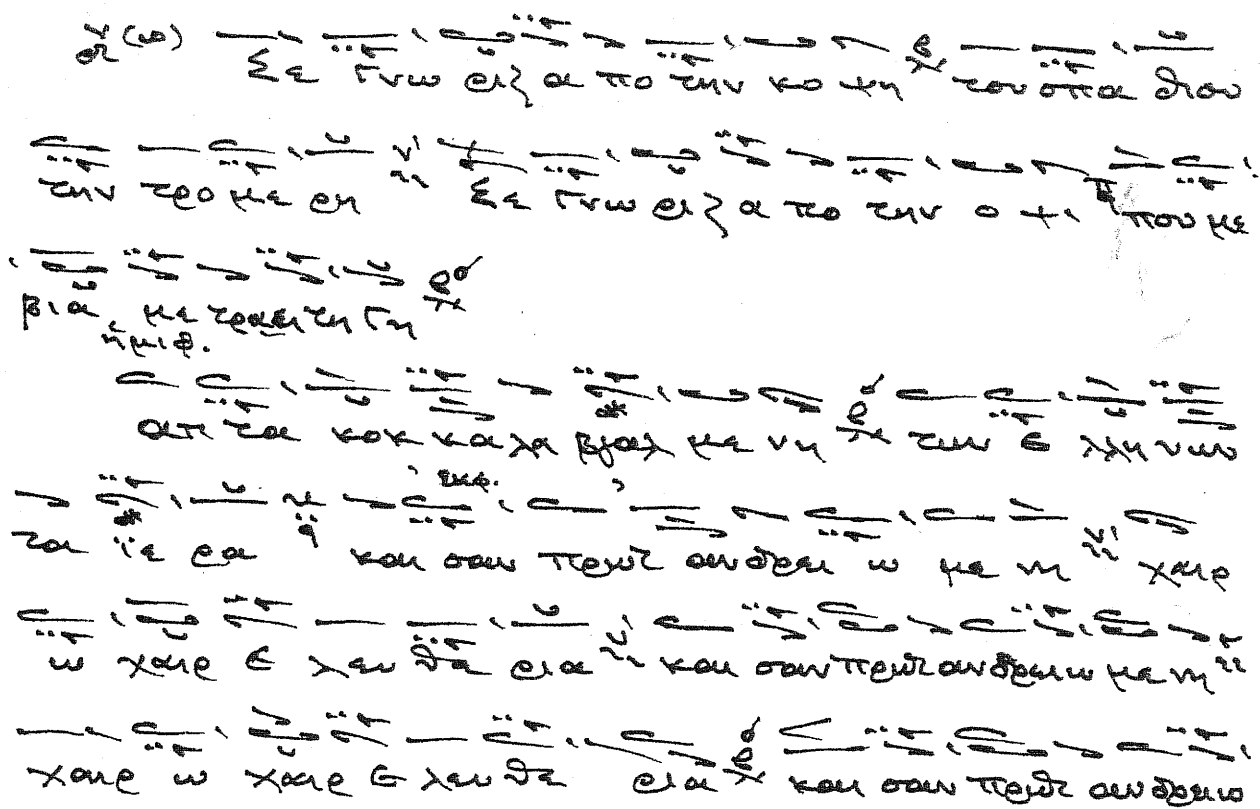 Σε γνω ριζ α πο την κο ψη του σπα θιου
την τρο με ρη Σε γνω ριζ α πο την ο ψι που με
βια με τραει τη γη
ημιφ.
απ τα κοκ κα λα βγαλ με νη των Ε λλη νων
εκφ.
τα ϊε ρα και σαν πρωτ αν δρει ω με νη χαιρ
ω χαιρ Ε λευ θε ρια και σαν πρωτ αν δρει ω με νη
χαιρ ω χαιρ Ε λευ θε ρια και σαν πρωτ αν δρειο